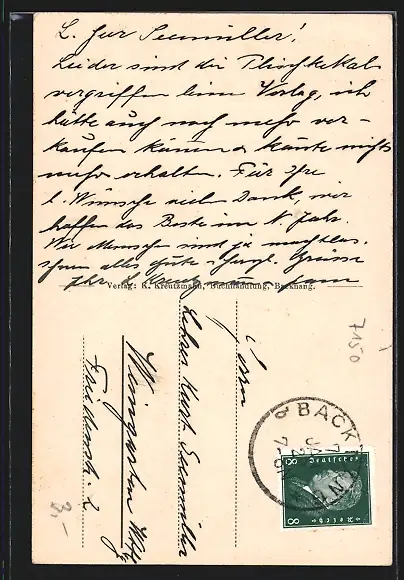 L. Herr Seemüller!
Leider sind die
vergriffen beim Verlag, ich
hätte auch noch mehr ver-
kaufen können & könnte nichts
mehr erhalten. Für Ihre
l. Wünsche vielen Dank, wir
hoffen das Beste im N. Jahr.
Wir Menschen sind ja machtlos.
Ihnen alles Gute & herzl. Grüsse
Ihr
Verlag: R. Kreutzmann, Buchhandlung, Backnang.
Herrn
Lehrer Kurt Seemüller
Weingarten
Friedenstr. 2
7150
3,-
BACK
Deutsches
Reich
8
8